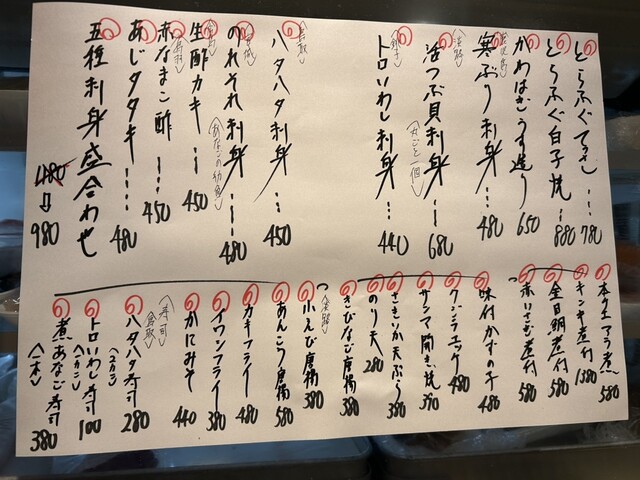 とらふぐてっさ… 780
とらふぐ白子焼… 880
かわはぎうす造り 650
寒ぶり刺身… 480
淡路
活つぶ貝刺身… 680
(丸ごと一個)
トロいわし刺身… 440
銚子
ハタハタ刺身… 450
鳥取
のれそれ刺身… 480
(あなごの幼魚)
宮城
生酢カキ… 450
赤なまこ酢… 450
あじタタキ… 480
五種刺身盛合わせ
1480⇨980
本クエアラ煮 580
キンキ煮付 1380
金目鯛煮付 580
赤いさき煮付 580
味付かずの子 480
クジラユッケ 480
サンマ開き焼 390
さきいか天ぷら 380
のり天 280
きびなご唐揚 380
小えび唐揚 380
淡路
あんこう唐揚 580
カキフライ 480
イワシフライ 380
かにみそ 440
<寿司>
鳥取
ハタハタ寿司 280
(二カン)
トロいわし寿司 100
(一カン)
煮あなご寿司 380
(一本)